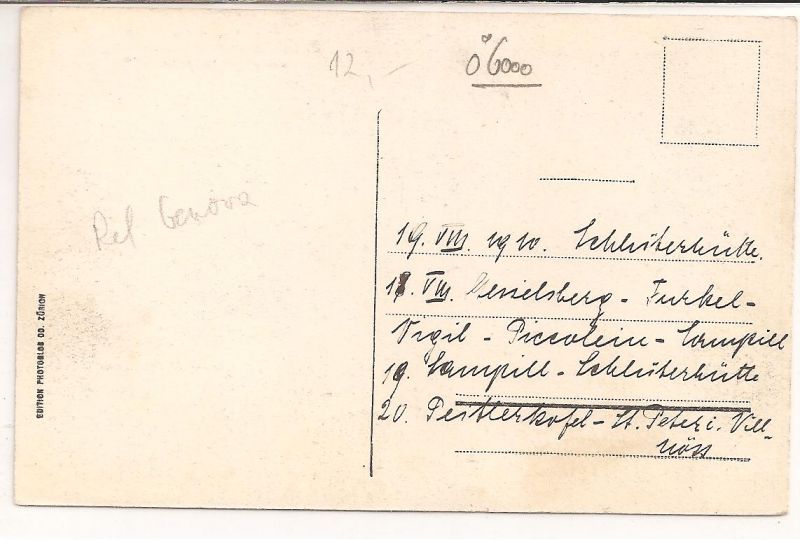 12,-
ö6000
Rel. Genova
19. VIII. 1910. Schlüterhütte.
18. VIII. - Furkel-
Vigil - Piccolein - Campill
19. Campill - Schlüterhütte
20. Peitlerkofel - St. Peter i. Vill-
nöss
EDITION PHOTOGLOB CO. ZÜRICH